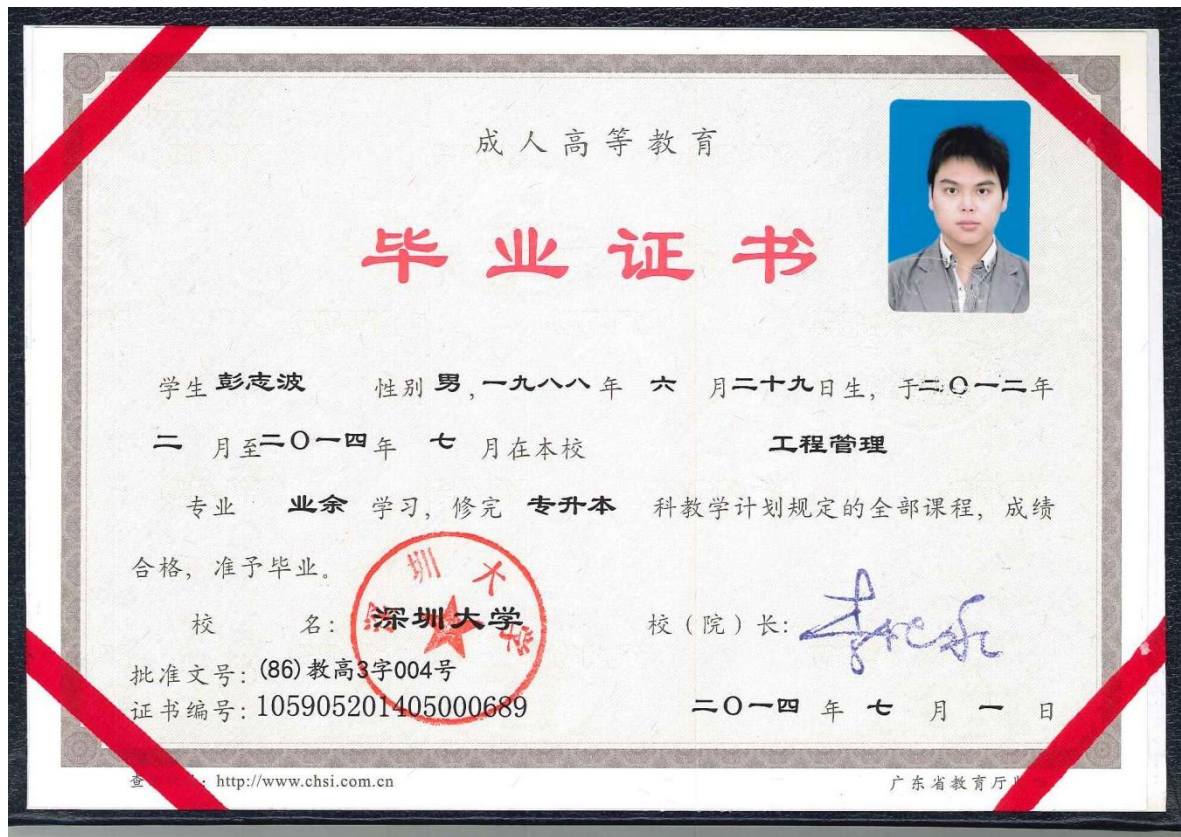 成人高等教育
毕业证书
学生 彭志波 性别 男 , 一九八八 年 六 月 二十九 日生, 于 二〇一二 年
二 月至 二〇一四 年 七 月在本校 工程管理
专业 业余 学习, 修完 专升本 科教学计划规定的全部课程, 成绩
合格, 准予毕业。
校 名: 深圳大学 校(院)长:
深圳大学
批准文号: (86)教高3字004号
证书编号: 105905201405000689 二〇一四 年 七 月 一 日
查 : http://www.chsi.com.cn 广东省教育厅